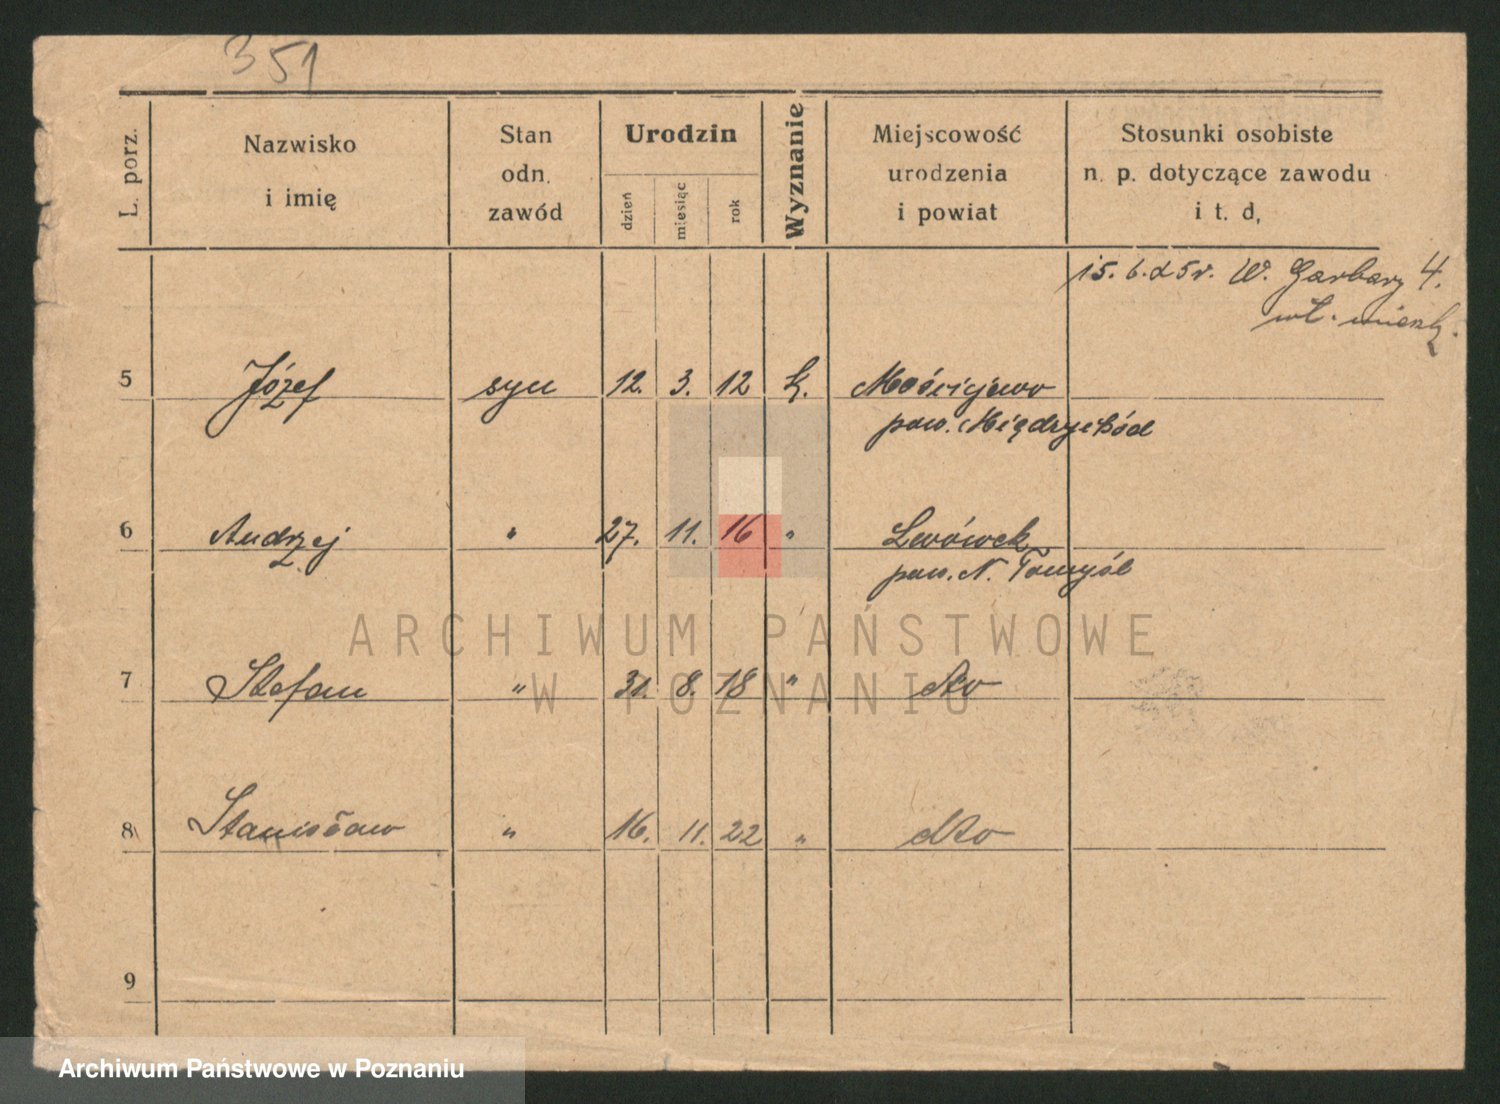 351
L. porz.
Nazwisko
i imię
Stan
odn.
zawód
Urodzin
dzień
miesiąc
rok
Wyznanie
Miejscowość
urodzenia
i powiat
Stosunki osobiste
n. p. dotyczące zawodu
i t. d,
15. 6. 25 r. W. Garbary 4.
wł. mieszk.
5 Józef syn 12. 3. 12 k. Mościejewo
pow. Międzychód
6 Andrzej " 27. 11. 16 " Lwówek
pow. N. Tomyśl
ARCHIWUM PAŃSTWOWE
7 Stefan " 31. 8. 18 " dto
W POZNANIU
8 Stanisław " 16. 11. 22 " dto
9
Archiwum Państwowe w Poznaniu